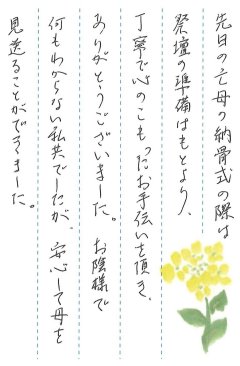 先日の亡母の納骨式の際は
祭壇の準備はもとより、
丁寧で心のこもったお手伝いを頂き、
ありがとうございました。お陰様で
何もわからない私共でしたが、安心して母を
見送ることができました。